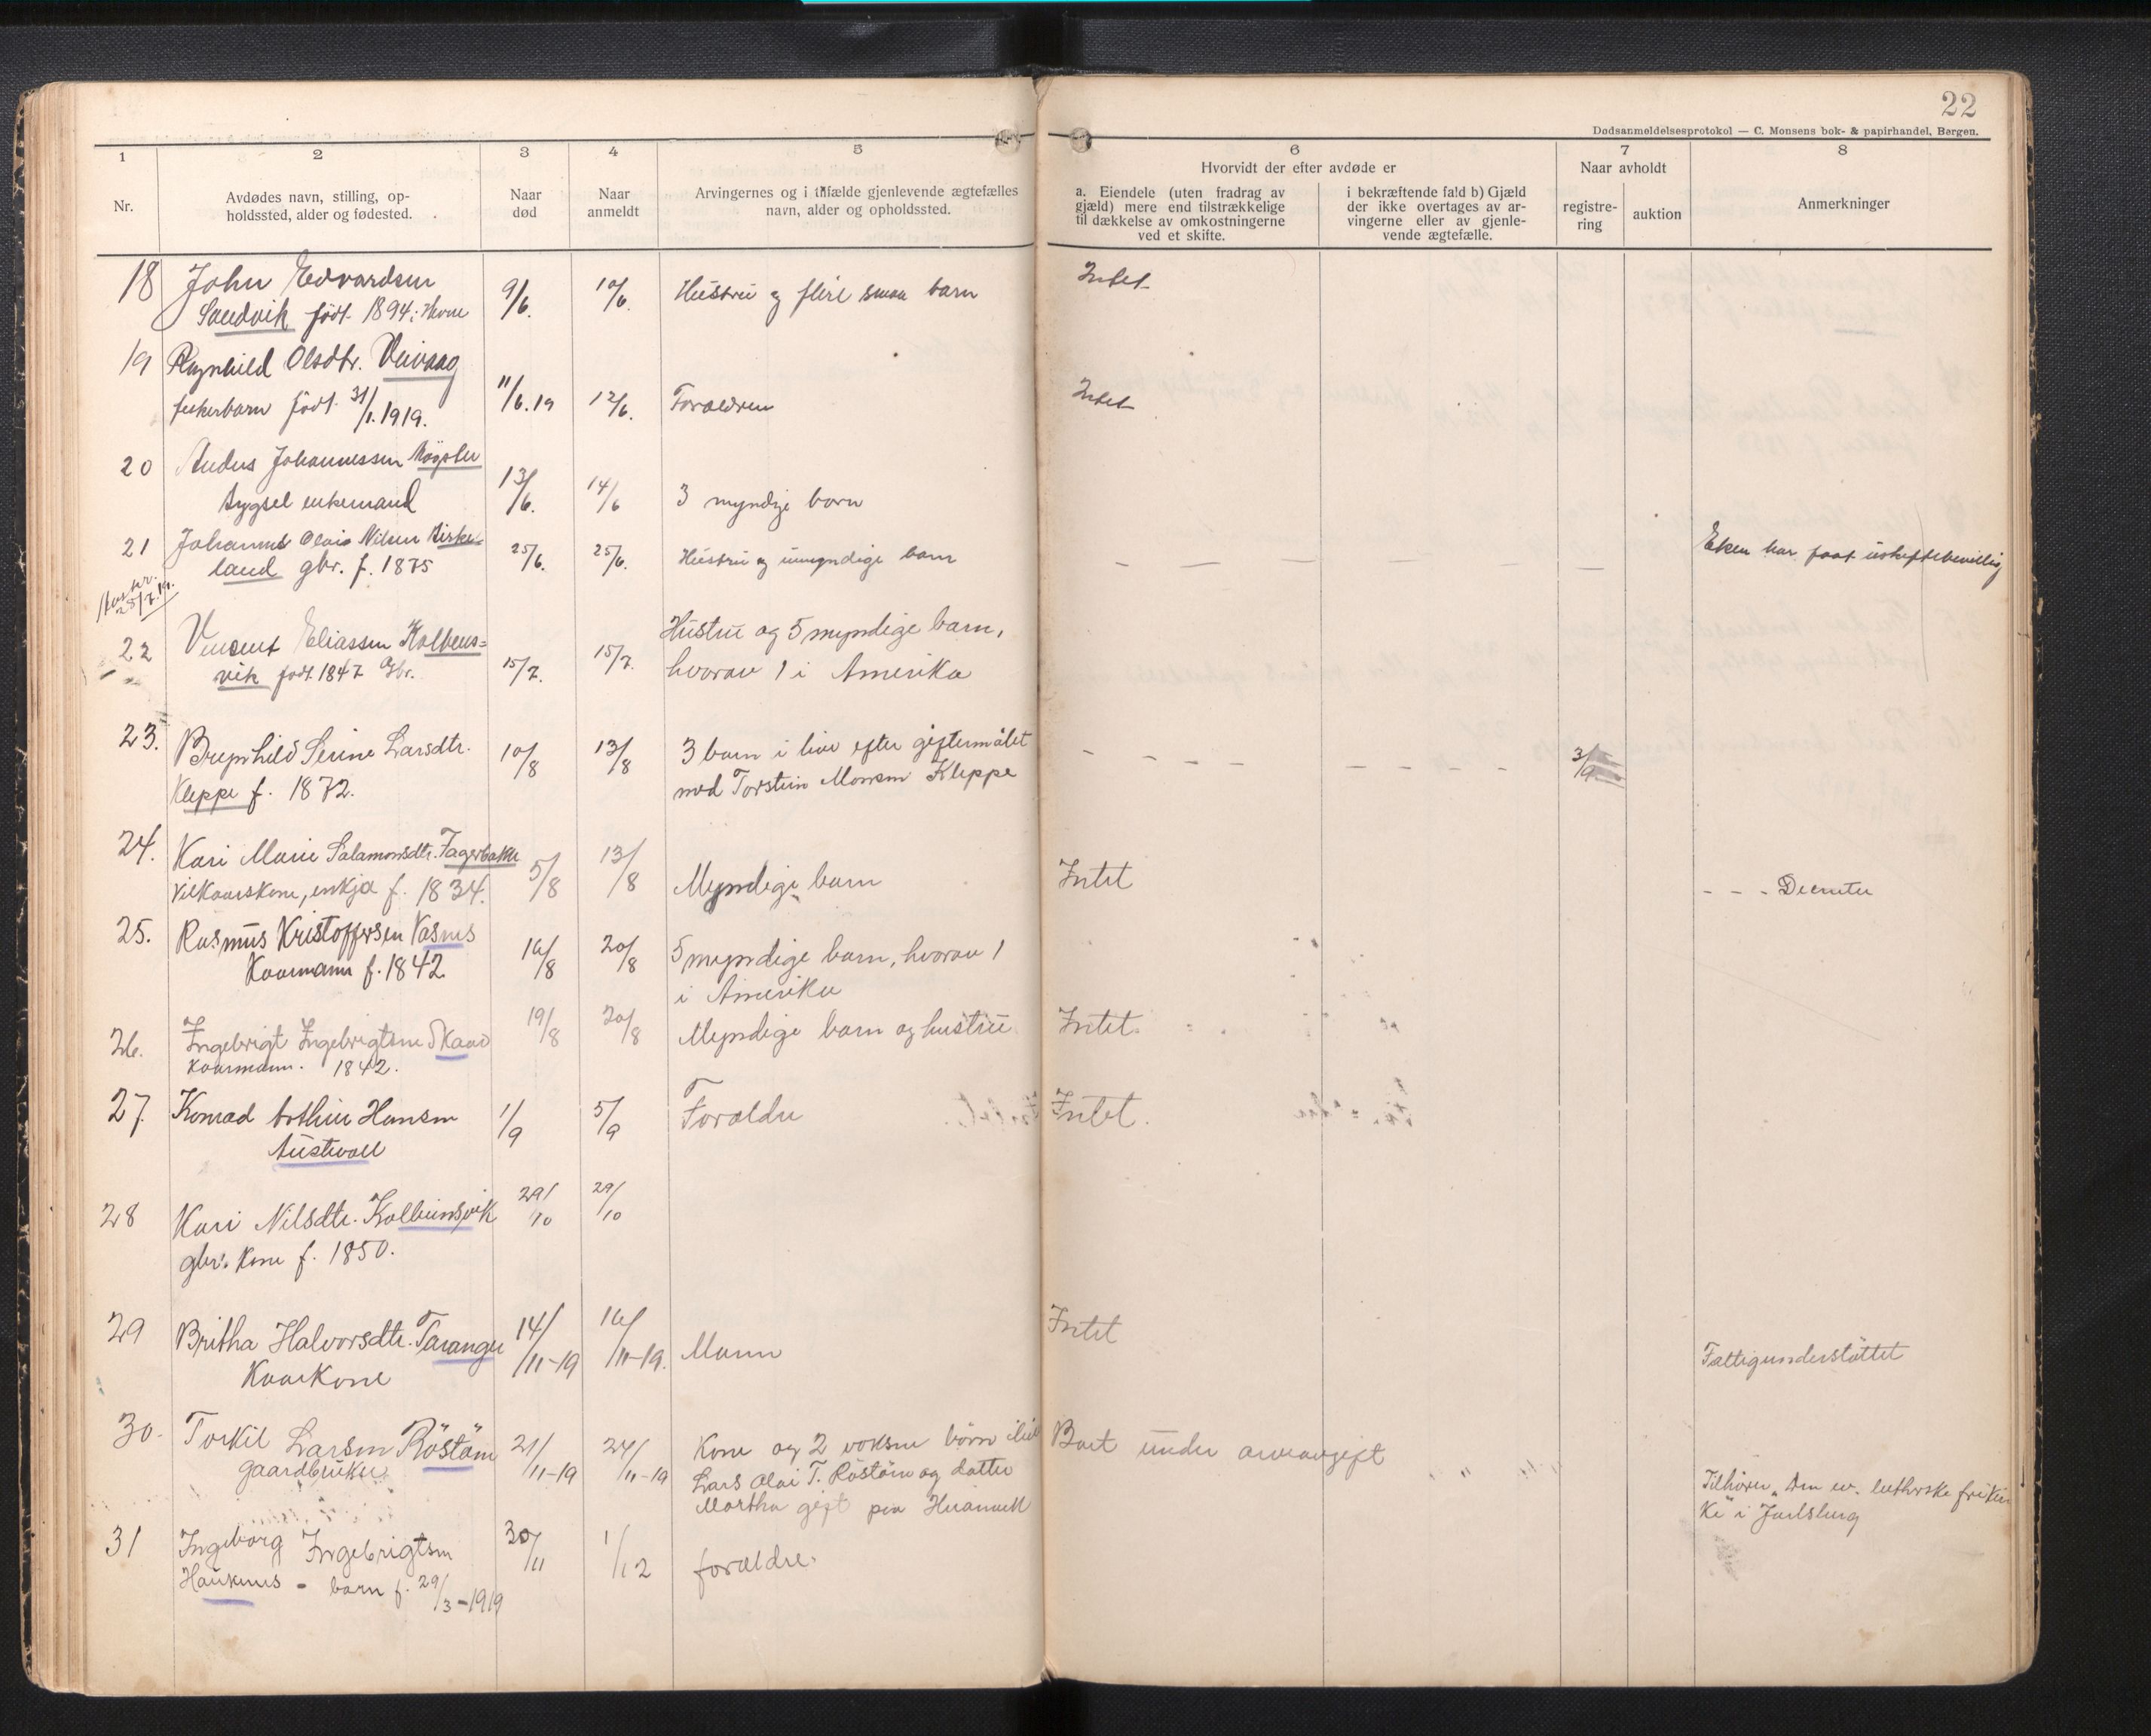 22
Dødsanmeldelsesprotokol — C. Monsens bok- & papirhandel, Bergen.
1 2 3 4 5 6 7 8
Nr.
Avdødes navn, stilling, op-
holdssted, alder og fødested.
Naar
død
Naar
anmeldt
Arvingernes og i tilfælde gjenlevende ægtefælles
navn, alder og opholdssted.
Hvorvidt der efter avdøde er
a. Eiendele (uten fradrag av
gjæld) mere end tilstrækkelige
til dækkelse av omkostningerne
ved et skifte.
i bekræftende fald b) Gjæld
der ikke overtages av ar-
vingerne eller av gjenle-
vende ægtefælle.
Naar avholdt
registre-
ring
auktion
Anmerkninger
18 John Edvardsen
Sandvik født 1894 i 9/6. 10/6. Hustru og flere smaa barn Intet
19 Ragnhild Olsdtr. Veivaag
fiskerbarn født 31/1.1919. 11/6.19 12/6. Forældren Intet
20 Anders Johannessen
enkemand 13/6. 14/6 3 myndige barn
21 Johannes Olai Nilsen Birke-
land gbr. f. 1875 25/6. 25/6. Hustru og umyndige barn — — — — — Eken har faat uskiftebevilling
25/7.19.
22 Vincent Eliassen Kolbeins=
vik født 1847 Gbr. 15/7. 15/7. Hustru og 5 myndige barn,
hvorav 1 i Amerika
23. Brynhild Serine Larsdtr.
Kleppe f. 1872. 10/8 13/8 3 barn i live efter giftermålet
med Torstein Monsen Kleppe - - - - - - - - 3/9
24. Kari Marie Salamonsdtr. Fagerbakke
Vilkaarskone, enkja f. 1834. 5/8 13/8 Myndige barn Intet - - - Decreter
25. Rasmus Kristoffersen Vasnes
Kaarmann f. 1842. 16/8 20/8 5 myndige barn, hvorav 1
i Amerika
26. Ingebrigt Ingebrigtsen Skaar
Kaarmann. 1842. 19/8 20/8 Myndige barn og hustru Intet.
27. Konrad Hansen
Austevoll 1/9 5/9 Forældre Intet.
28 Kari Nilsdtr. Kolbeinsvik
gbr. kone f. 1850. 29/10 29/10
29 Britha Halvorsdtr. Taranger
Kaarkone 14/11-19 16/11-19. Mann Intet Fattigunderstøttet
30. Torkil Larsen Röstöen
Gaardbruker 21/11-19 24/11-19 Kone og 2 voksne börn i live
Lars Olai T. Röstöen og datter
Martha gift paa Boet under arveavgift
Tilhører "Den ev. lutherske frikir
ke" i Jarlsberg
31 Ingeborg Ingebrigtsen
Haukenes - barn f. 29/3-1919 30/11 1/12 forældre.